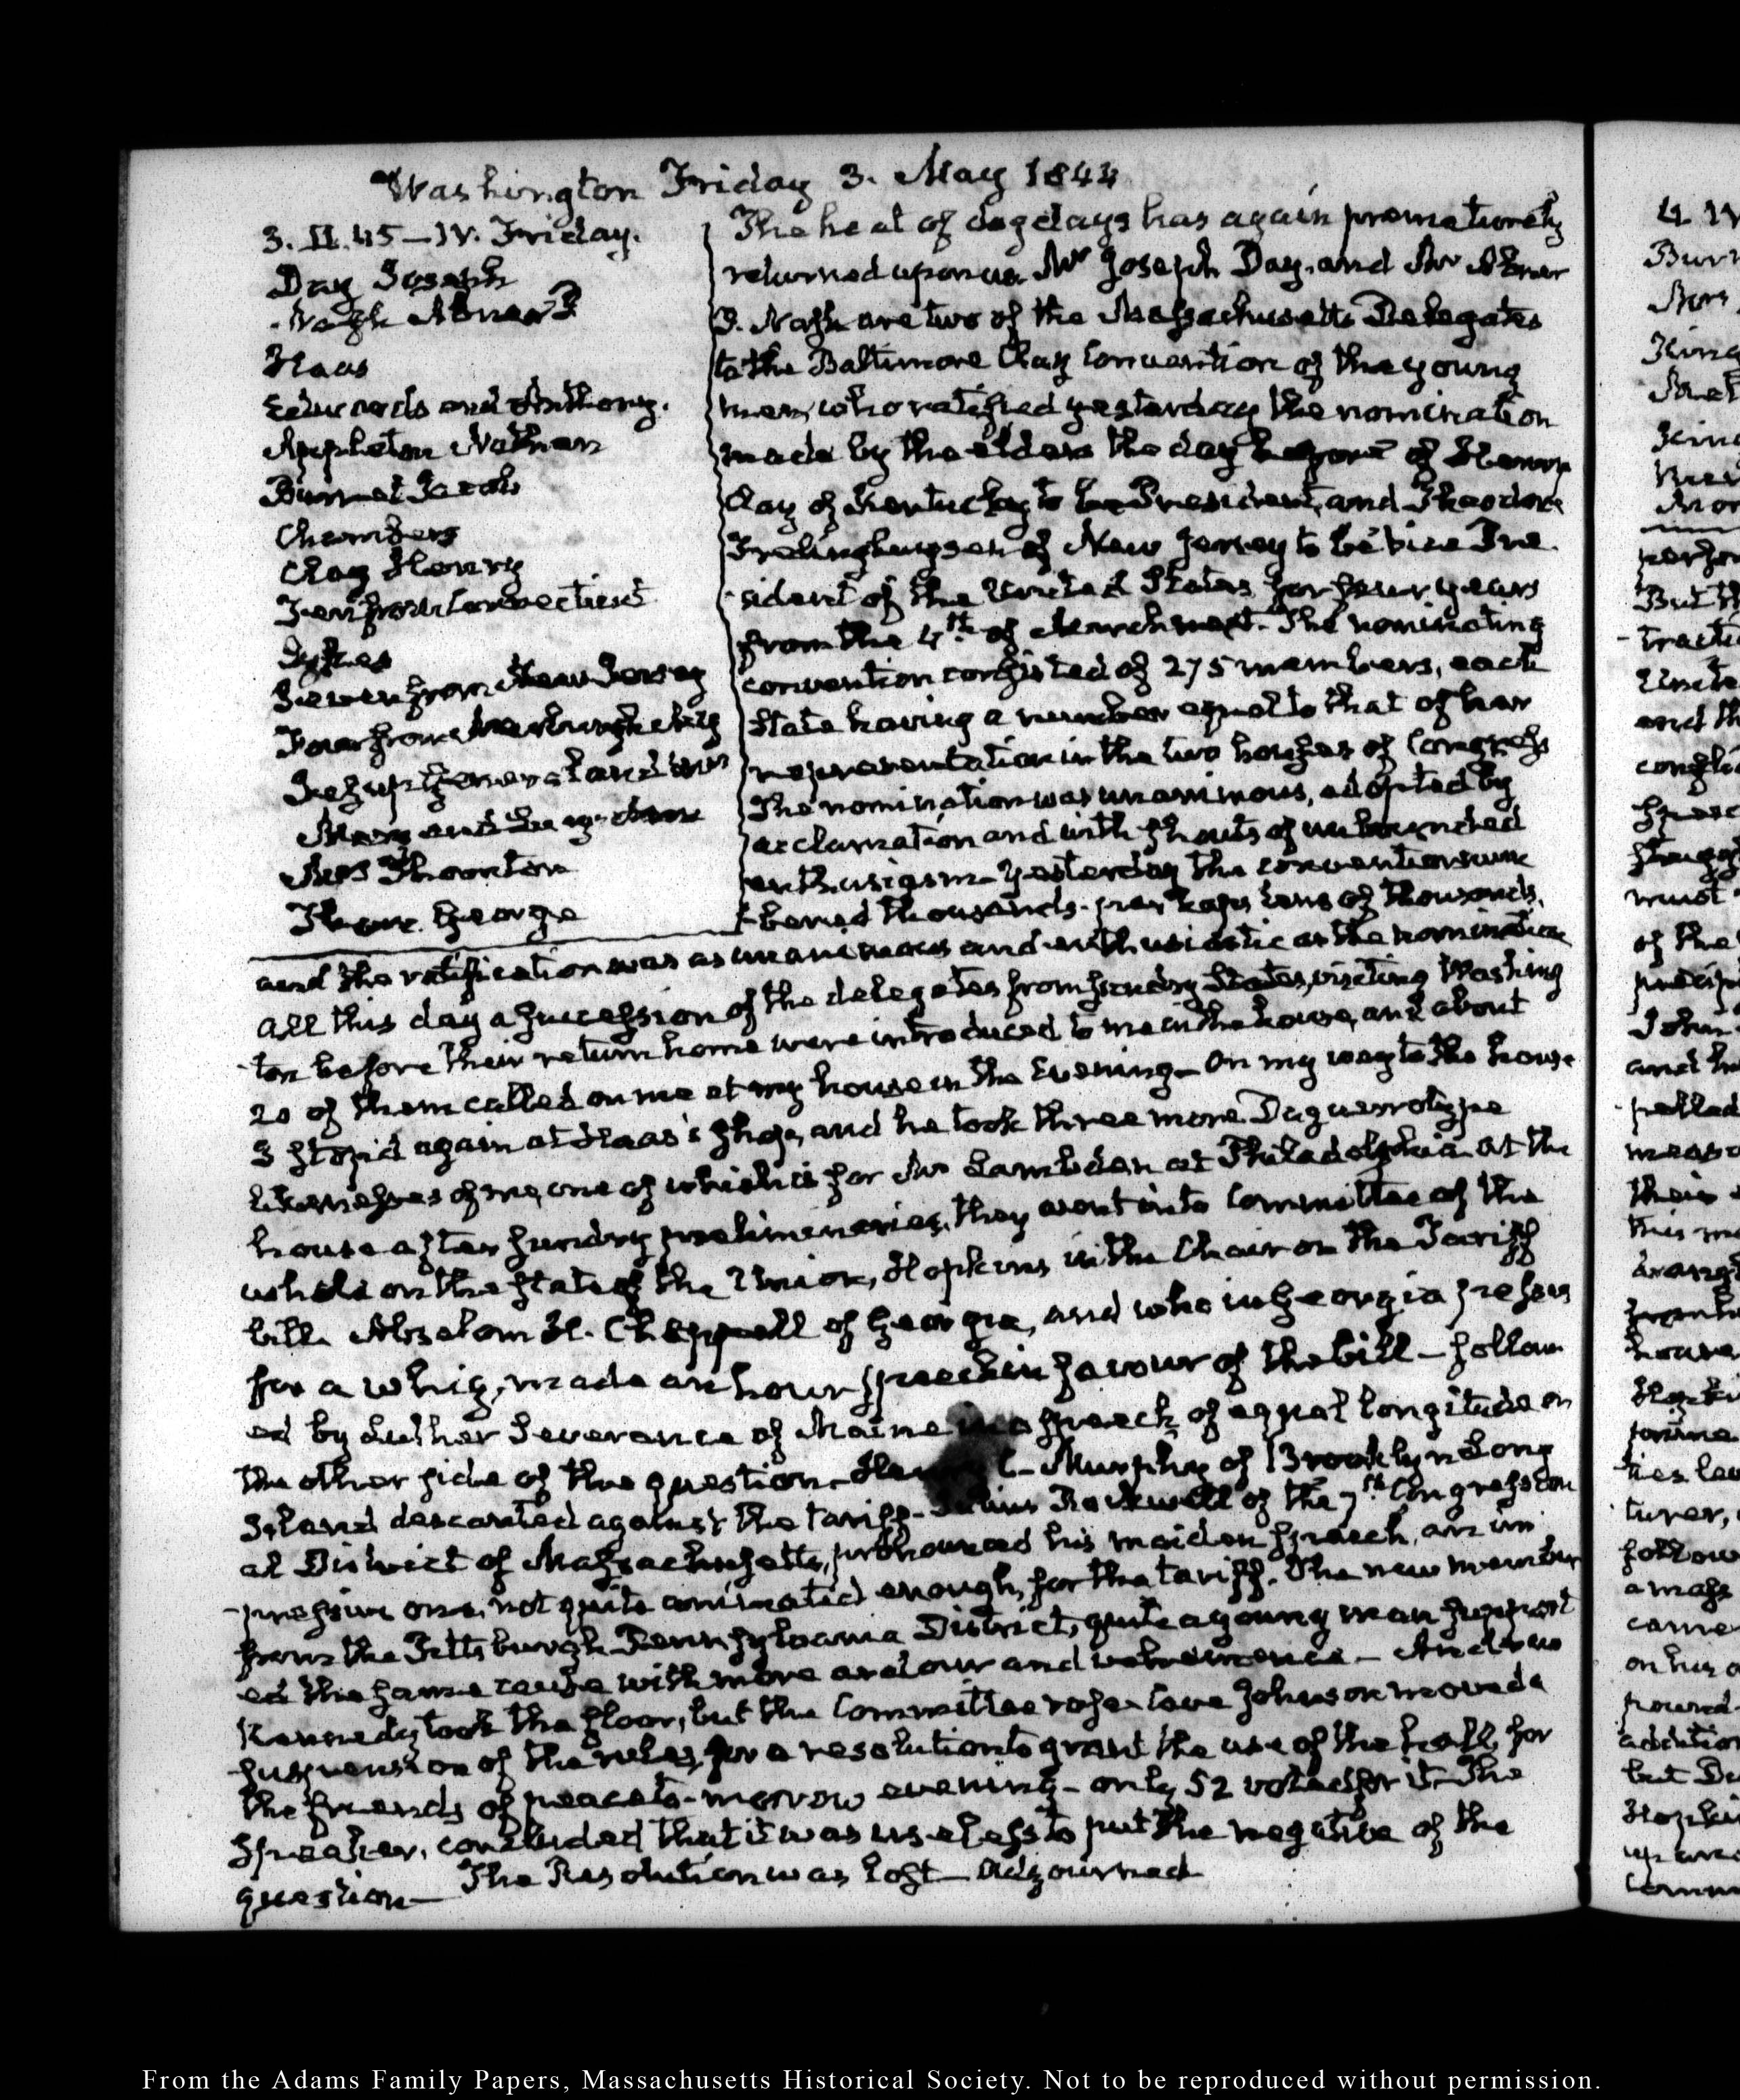 Washington Friday 3. May 1844
3. II.45 — IV. Friday.
Day Joseph
Nash Abner P
Haas
Edwards and Anthony.
Appleton Nathan
Burnet Jacob
Chambers
Clay Henry
Ten from Connecticut
Sykes
Seven from New Jersey
Four from
Jesup General and wife
Mary and
Mrs Thornton
George
The heat of dog days has again prematurely
returned upon us. Mr Joseph Day, and Mr Abner
P. Nash are two of the Massachusetts Delegates
to the Baltimore Clay Convention of the young
men, who ratified yesterday the nomination
made by the elders the day before of Henry
Clay of Kentucky to be President, and Theodore
Frelinghuysen of New Jersey to be Vice Pre
-sident of the United States for four years
from the 4th of March next. The nominating
convention consisted of 275 members, each
State having a number equal to that of her
representation in the two houses of Congress
The nomination was unanimous, adopted by
acclamation and with shouts of unbounded
enthusiasm— Yesterday the convention num
-bered thousands— perhaps tens of thousands,
and the ratification was as unanimous and enthusiastic as the nomination
All this day a succession of the delegates from sundry States, visiting Washing
-ton before their return home were introduced to me in the house, and about
20 of them called on me at my house in the Evening— On my way to the house
I stop'd again at Haas's shop, and he took three more Daguerrotype
likenesses of me, one of which is for Mr Lambdin at Philadelphia. At the
house after sundry preliminaries, they went into Committee of the
whole on the state of the Union, Hopkins in the Chair on the Tariff
bill. Absalom H. Chappell of Georgia, and who in Georgia passes
for a whig, made an hour speech in favour of the bill— follow
ed by Luther Severance of Maine in a speech of equal longitude on
the other side of the question— Henry C. Murphy of Brooklyn Long
Island descanted against the tariff— Julius Rockwell of the 7th Congression
al District of Massachusetts, pronounced his maiden speech, an im
-pressive one, not quite animated enough, for the tariff. The new member
from the Pittsburgh Pennsylvania District, quite a young man support
ed the same cause with more ardour and vehemence— Andrew
Kennedy took the floor, but the Committee rose— Cave Johnson moved a
suspension of the rules, for a resolution to grant the use of the hall, for
the friends of peace to-morrow evening— only 52 voted for it— The
Speaker, concluded that it was useless to put the negative of the
question— The Resolution was lost— Adjourned
4 IV
From the Adams Family Papers, Massachusetts Historical Society. Not to be reproduced without permission.